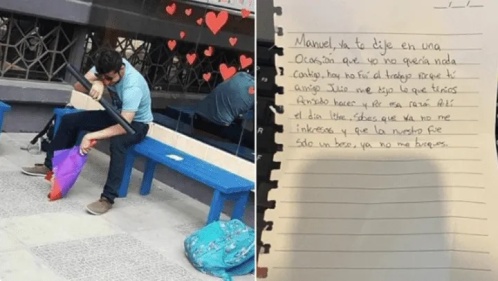 Manuel, ya te dije en una
Ocasión que yo no quería nada
contigo, hoy no fui al trabajo porque tú
amigo Julio me dijo lo que tenías
Pensado hacer y por esa razón Pedí
el día libre, sabes que ya no me
interesas y que lo nuestro fue
solo un beso, ya no me busques.